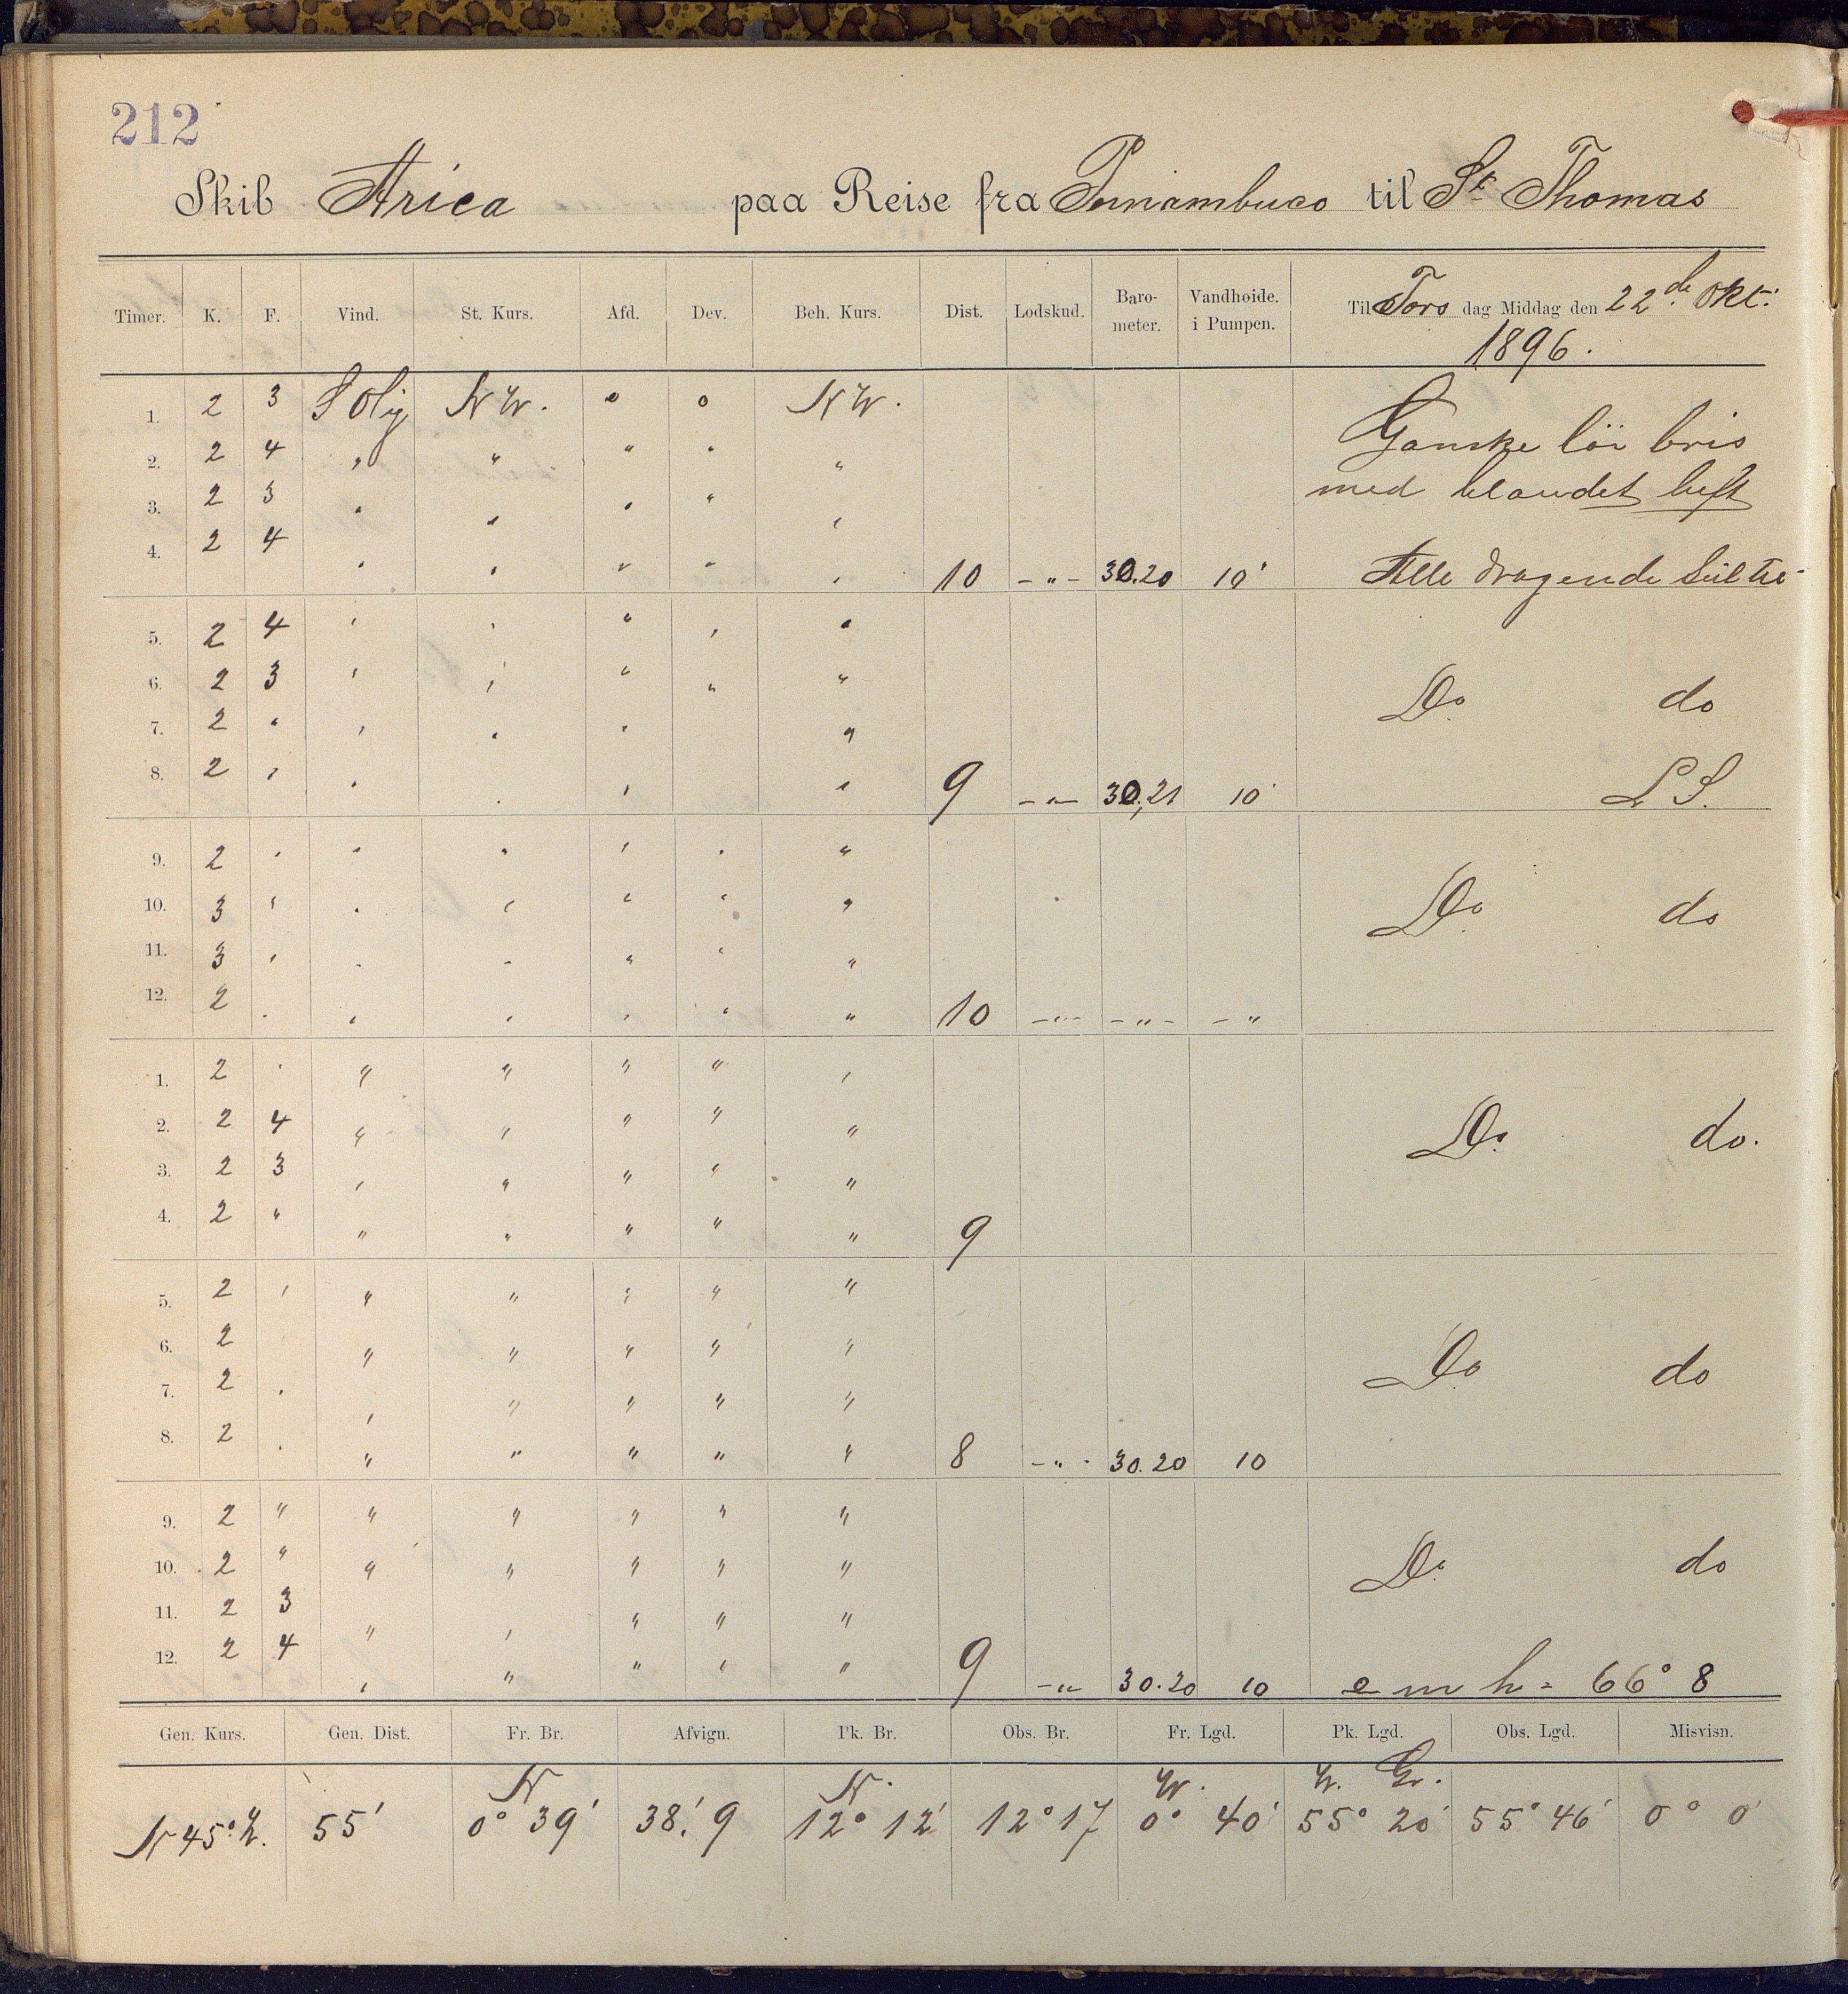 212
Skib Arica paa Reise fra Pernambuco til St Thomas
Timer. K. F. Vind. St. Kurs. Afd. Dev. Beh. Kurs. Dist. Lodskud. Baro-meter. Vandhoide. i Pumpen. Til Tors dag Middag den 22de Okt:
1896.
1. 2 3 S Olig N W. o o N W. Ganske löi bris
2. 2 4 " " " " " med blandet luft
3. 2 3 " " " " "
4. 2 4 " " " " " 10 - " - 30.20 10' Alle dragende Seil
5. 2 4 " " " " "
6. 2 3 " " " " " Do do
7. 2 " " " " "
8. 2 " " " " " 9 - " - 30,21 10' L S.
9. 2 " " " " " "
10. 3 " " " " " " Do do
11. 3 " " " " " "
12. 2 " " " " " " 10 - " - - " - - "
1. 2 " " " " " "
2. 2 4 " " " " " Do do.
3. 2 3 " " " " "
4. 2 " " " " " " 9
5. 2 " " " " " "
6. 2 " " " " " Do do
7. 2 " " " " " "
8. 2 " " " " " " 8 - " - 30.20 10
9. 2 " " " " " "
10. 2 " " " " " " Do do
11. 2 3 " " " " "
12. 2 4 " " " " " 9 - " 30.20 10 e m h = 66° 8
Gen. Kurs. Gen. Dist. Fr. Br. Afvign. Pk. Br. Obs. Br. Fr. Lgd. Pk. Lgd. Obs. Lgd. Misvisn.
N N. W. W. Gr.
N 45° W. 55' 0° 39' 38,'9 12° 12' 12° 17 0° 40' 55° 20' 55° 46' 0° 0'